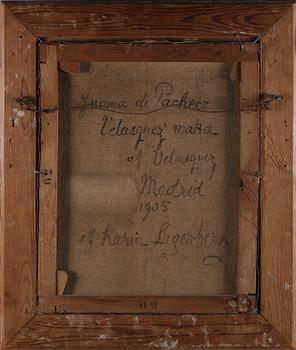 Juana de Pacheco
Velasquez' maka
af Velasquez
Madrid
1905
af Karin Legenberg.
50
50